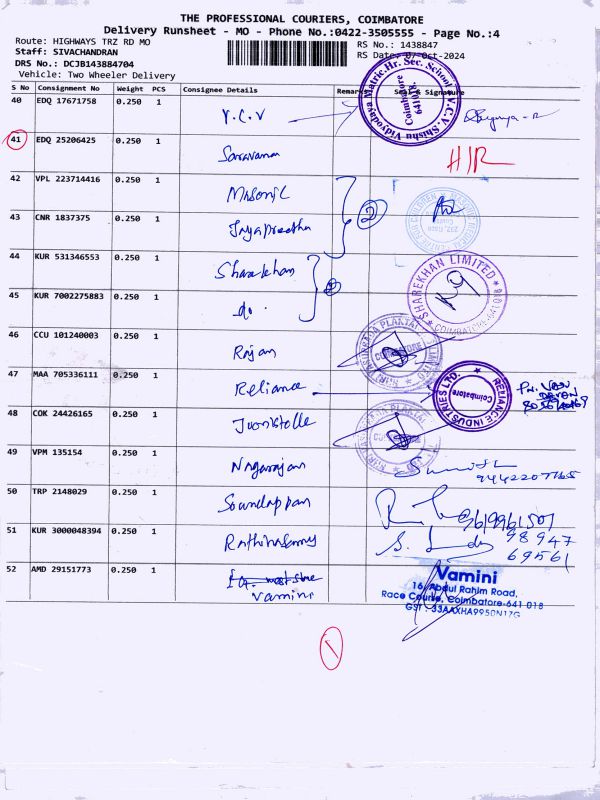 THE PROFESSIONAL COURIERS, COIMBATORE
Delivery Runsheet - MO - Phone No.:0422-3505555 - Page No.:4
Route: HIGHWAYS TRZ RD MO
RS No.: 1438847
Staff: SIVACHANDRAN
RS Date: 07-Oct-2024
DRS No.: DCJB143884704
Vehicle: Two Wheeler Delivery
S No Consignment No Weight PCS Consignee Details Remarks Seal & Signature
40 EDQ 17671758 0.250 1 V.C.V
Vidyodaya Matric.Hr. Sec. School V.C.V. Shishu
Coimbatore
641018.
41 EDQ 25206425 0.250 1 Saravana H/R
42 VPL 223714416 0.250 1 Masonic
2
43 CNR 1837375 0.250 1 Jayapreetha
44 KUR 531346553 0.250 1 Sharekhan
SHAREKHAN LIMITED
COIMBATORE-641 018
45 KUR 7002275883 0.250 1 do.
46 CCU 101240003 0.250 1 Rajam
47 MAA 705336111 0.250 1 Reliance
RELIANCE INDUSTRIES LTD.
Coimbatore
48 COK 24426165 0.250 1
49 VPM 135154 0.250 1 Nagarajan
9442207765
50 TRP 2148029 0.250 1 Soundappan
9619961507
51 KUR 3000048394 0.250 1 Rathinasamy
98947
69561
52 AMD 29151773 0.250 1
Vamini
Vamini
16, Abdul Rahim Road,
Race Course, Coimbatore-641 018
GST : 33AAXHA9950N1ZG
1